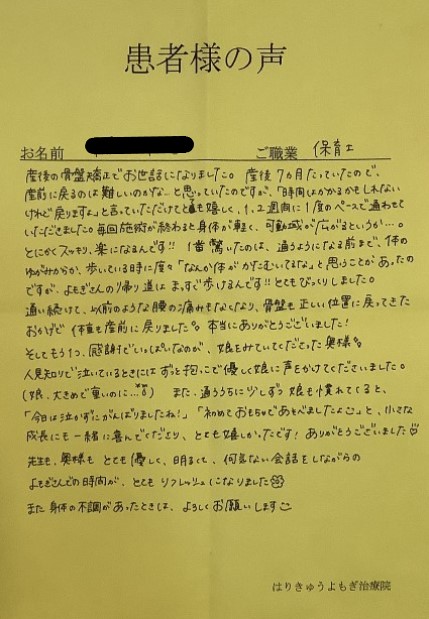 患者様の声
お名前 ご職業 保育士
産後の骨盤矯正でお世話になりました。産後7カ月たっていたので、
産前に戻るのは難しいのかな…と思っていたのですが、「時間はかかるかもしれない
けれど戻りますよ」と言っていただけてとても嬉しく、1、2週間に1度のペースで通わせて
いただきました。毎回施術が終わると身体が軽く、可動域が広がるというか…。
とにかくスッキリ、楽になるんです!!1番驚いたのは、通うようになる前まで、体の
ゆがみからか、歩いている時に度々「なんか体がかたむいてるな」と思うことがあったの
ですが、よもぎさんの帰り道はまっすぐ歩けるんです!!とてもびっくりしました。
通い続けて、以前のような腰の痛みもなくなり、骨盤も正しい位置に戻ってきた
おかげで体重も産前に戻りました。本当にありがとうございました!
そしてもう1つ、感謝でいっぱいなのが、娘をみていてくださった奥様。
人見知りで泣いているときにはずっと抱っこで優しく娘に声をかけてくださいました。
(娘、大きめで重いのに…) また、通ううちに少しずつ娘も慣れてくると、
「今日は泣かずにがんばりましたね!」「初めておもちゃであそべましたよ」と、小さな
成長にも一緒に喜んでくださり、とても嬉しかったです!ありがとうございました
先生も、奥様もとても優しく、明るくて、何気ない会話をしながらの
よもぎさんでの時間が、とてもリフレッシュになりました
また身体の不調があったときは、よろしくお願いします
はりきゅうよもぎ治療院